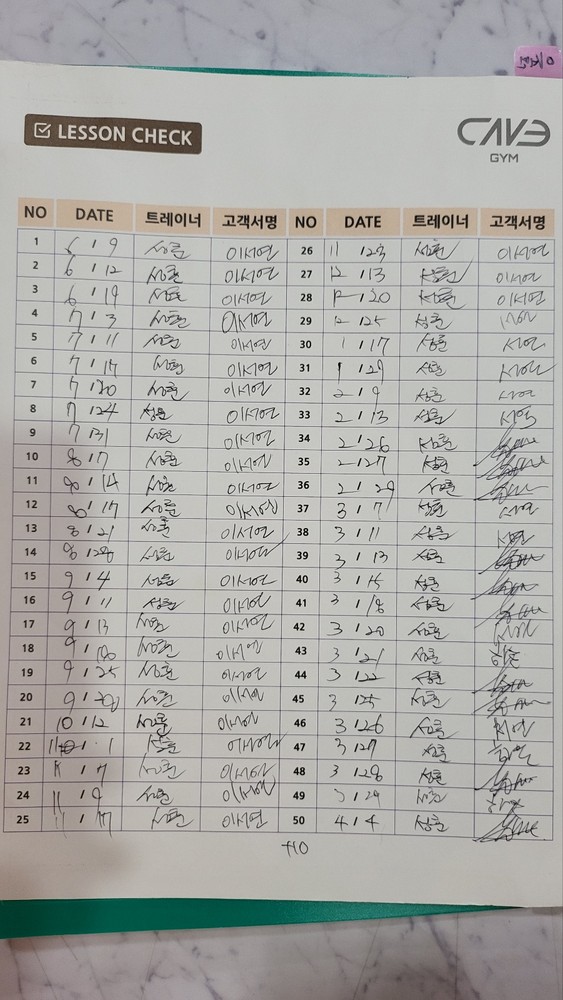 LESSON CHECK
CAVE
GYM
NO DATE 트레이너 고객서명 NO DATE 트레이너 고객서명
1 6 / 9 성훈 이서연 26 11 / 23 성훈 이서연
2 6 / 12 성훈 이서연 27 12 / 13 성훈 이서연
3 6 / 19 성훈 이서연 28 12 / 20 성훈 이서연
4 7 / 3 성훈 이서연 29 12 / 25 성훈 서연
5 7 / 11 성훈 이서연 30 1 / 17 성훈 서연
6 7 / 17 성훈 이서연 31 1 / 29 성훈 서연
7 7 / 20 성훈 이서연 32 2 / 9 성훈 서연
8 7 / 24 성훈 이서연 33 2 / 13 성훈 서연
9 7 / 31 성훈 이서연 34 2 / 26 성훈
10 8 / 7 성훈 이서연 35 2 / 27 성훈
11 8 / 14 성훈 이서연 36 2 / 29 성훈
12 8 / 17 성훈 이서연 37 3 / 7 성훈 서연
13 8 / 21 성훈 이서연 38 3 / 11 성훈 서연
14 8 / 28 성훈 이서연 39 3 / 13 성훈
15 9 / 4 성훈 이서연 40 3 / 15 성훈
16 9 / 11 성훈 이서연 41 3 / 18 성훈
17 9 / 13 성훈 이서연 42 3 / 20 성훈 서연
18 9 / 성훈 이서연 43 3 / 21 성훈
19 9 / 25 성훈 이서연 44 3 / 22 성훈
20 9 / 성훈 이서연 45 3 / 25 성훈
21 10 / 12 성훈 이서연 46 3 / 26 성훈 서연
22 11 / 1 성훈 이서연 47 3 / 27 성훈
23 11 / 7 성훈 이서연 48 3 / 28 성훈
24 11 / 9 성훈 이서연 49 3 / 29 성훈
25 11 / 17 성훈 이서연 50 4 / 4 성훈
+10